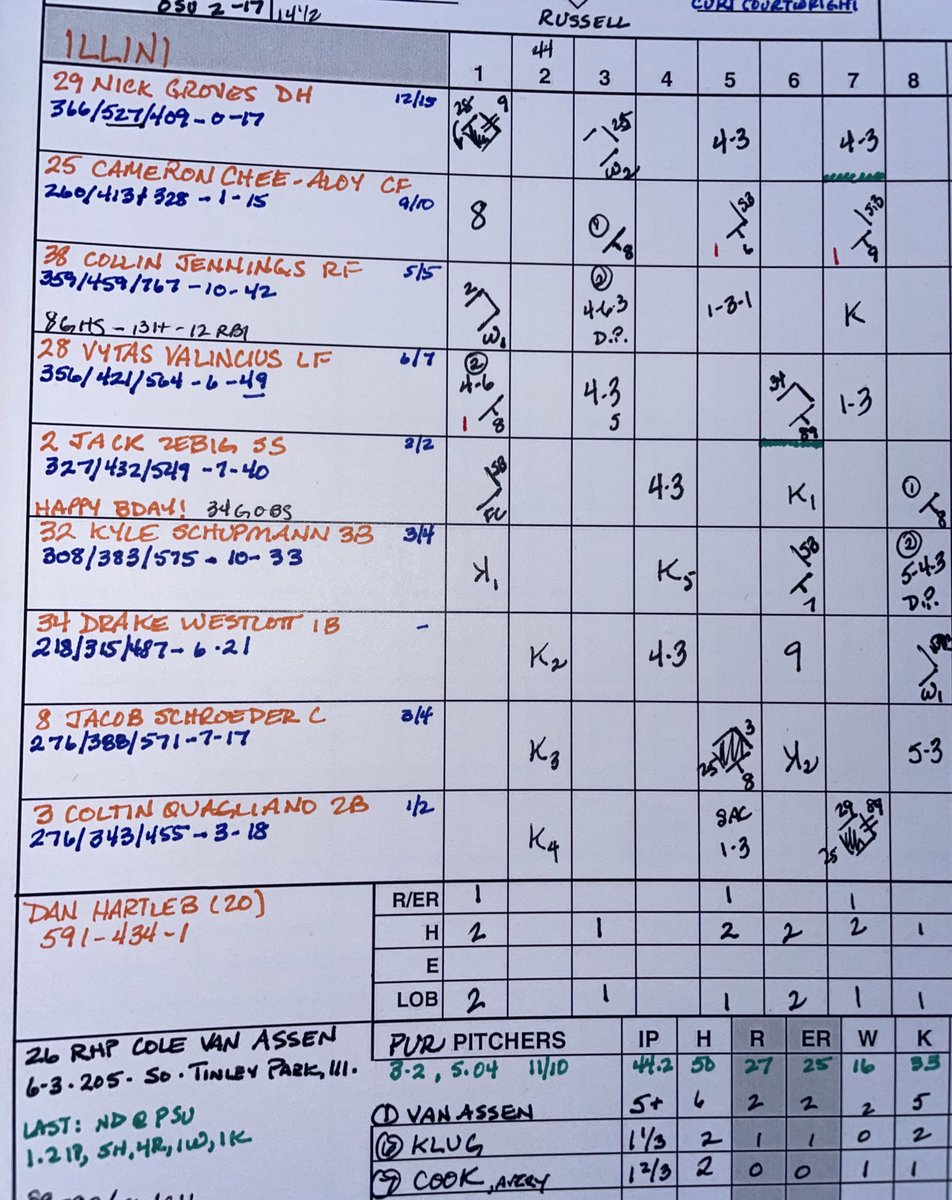 OSU 2-17 14½
RUSSELL
CURT COURTWRIGHT
ILLINI
44
1 2 3 4 5 6 7 8
29 NICK GROVES DH 12/15
366/527/409-0-17
28 9
25
W2
4-3
4-3
25 CAMERON CHEE-ALOY CF 9/10
260/413/328-1-15
8
① 8
SB
1 6
SB
1 9
38 COLLIN JENNINGS RF 5/5
359/459/767-10-42
8 GHS - 13H - 12 RBI
2 W1
② 4-6-3 D.P.
1-3-1
K
28 VYTAS VALINCIUS LF 6/7
356/421/564-6-49
② 4-6 1 8
4-3 5
34 89
1-3
2 JACK ZEBIG SS 2/2
327/432/549-7-40
HAPPY BDAY! 34 GOBS
SB FC
4-3
K1
① 8
32 KYLE SCHUPMANN 3B 3/4
308/383/575-10-33
K1
K5
SB 7
② 5-4-3 D.P.
34 DRAKE WESTCOTT 1B -
218/315/487-6-21
K2
4-3
9
W1
8 JACOB SCHROEDER C 3/4
276/388/571-7-17
K3
3 25 8
K2
5-3
3 COLTIN QUAGLIANO 2B 1/2
276/343/455-3-18
K4
SAC 1-3
29 89 25
DAN HARTLEB (20)
591-434-1
R/ER 1 1 1
H 2 1 2 2 2 1
E
LOB 2 1 1 2 1 1
26 RHP COLE VAN ASSEN
6-3. 205. SO. TINLEY PARK, Ill.
LAST: ND @ PSU
1.2 IP, 5H, 4R, 1W, 1K
PUR PITCHERS IP H R ER W K
3-2, 5.04 11/10 44.2 50 27 25 16 33
① VAN ASSEN 5+ 6 2 2 2 5
⑥ KLUG 1⅓ 2 1 1 0 2
⑦ COOK, AVERY 1⅔ 2 0 0 1 1